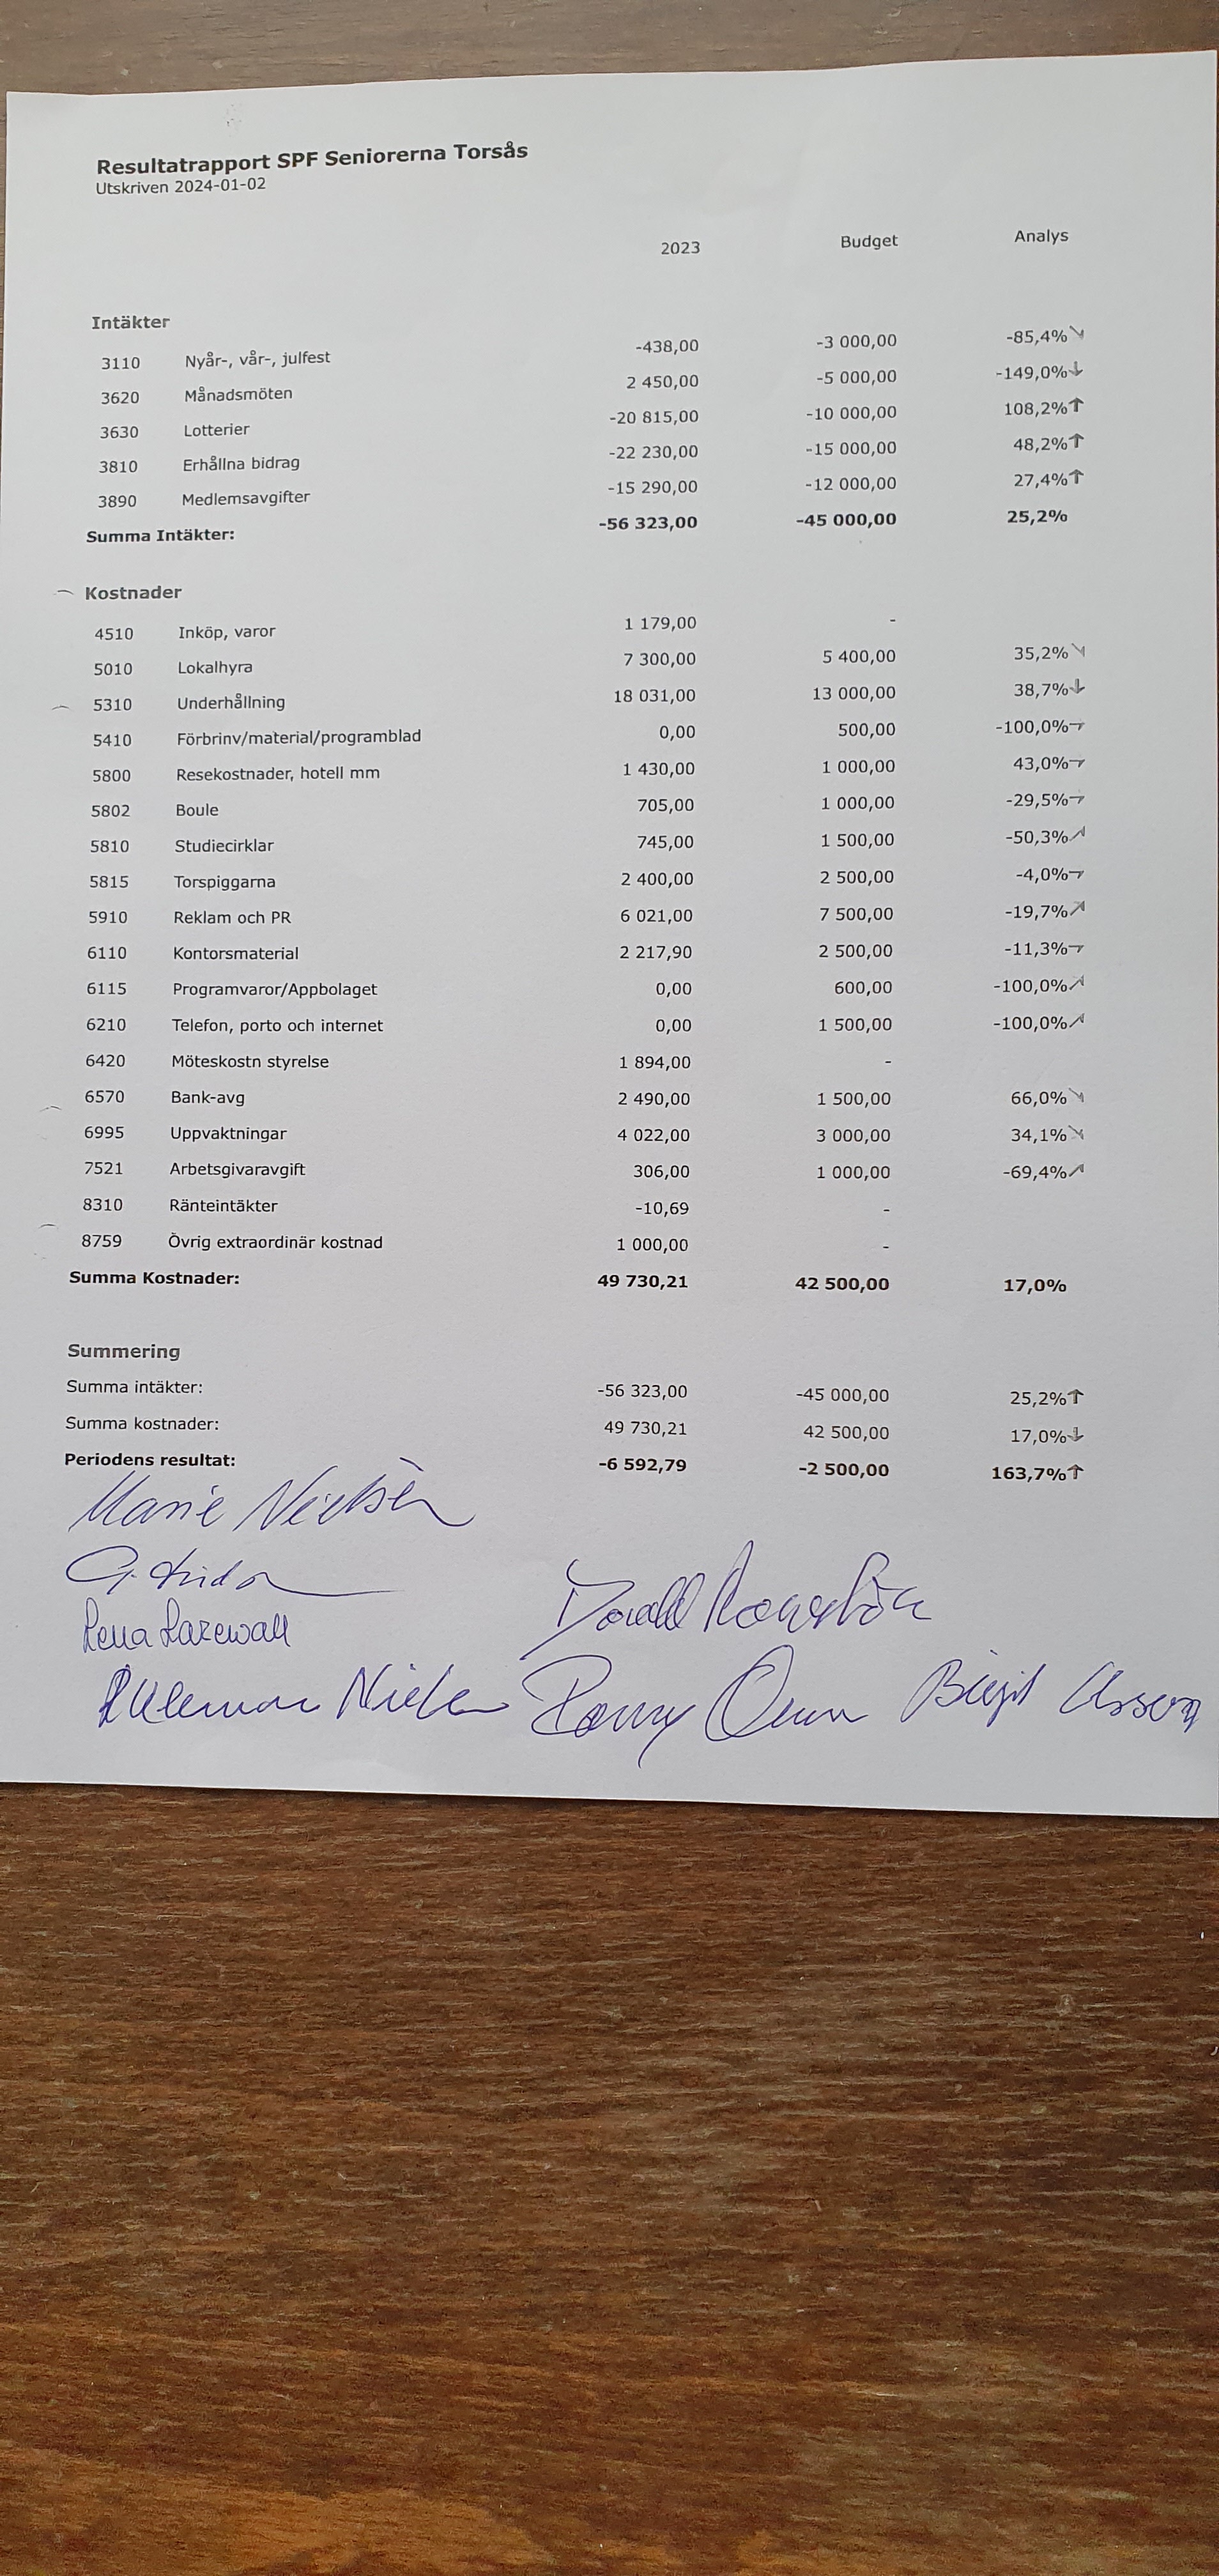 Resultatrapport SPF Seniorerna Torsås
Utskriven 2024-01-02
2023 Budget Analys
Intäkter
3110 Nyår-, vår-, julfest -438,00 -3 000,00 -85,4%
3620 Månadsmöten 2 450,00 -5 000,00 -149,0%
3630 Lotterier -20 815,00 -10 000,00 108,2%
3810 Erhållna bidrag -22 230,00 -15 000,00 48,2%
3890 Medlemsavgifter -15 290,00 -12 000,00 27,4%
Summa Intäkter: -56 323,00 -45 000,00 25,2%
Kostnader
4510 Inköp, varor 1 179,00 -
5010 Lokalhyra 7 300,00 5 400,00 35,2%
5310 Underhållning 18 031,00 13 000,00 38,7%
5410 Förbrinv/material/programblad 0,00 500,00 -100,0%
5800 Resekostnader, hotell mm 1 430,00 1 000,00 43,0%
5802 Boule 705,00 1 000,00 -29,5%
5810 Studiecirklar 745,00 1 500,00 -50,3%
5815 Torspiggarna 2 400,00 2 500,00 -4,0%
5910 Reklam och PR 6 021,00 7 500,00 -19,7%
6110 Kontorsmaterial 2 217,90 2 500,00 -11,3%
6115 Programvaror/Appbolaget 0,00 600,00 -100,0%
6210 Telefon, porto och internet 0,00 1 500,00 -100,0%
6420 Möteskostn styrelse 1 894,00 -
6570 Bank-avg 2 490,00 1 500,00 66,0%
6995 Uppvaktningar 4 022,00 3 000,00 34,1%
7521 Arbetsgivaravgift 306,00 1 000,00 -69,4%
8310 Ränteintäkter -10,69 -
8759 Övrig extraordinär kostnad 1 000,00 -
Summa Kostnader: 49 730,21 42 500,00 17,0%
Summering
Summa intäkter: -56 323,00 -45 000,00 25,2%
Summa kostnader: 49 730,21 42 500,00 17,0%
Periodens resultat: -6 592,79 -2 500,00 163,7%
Marie
Lena
Birgit